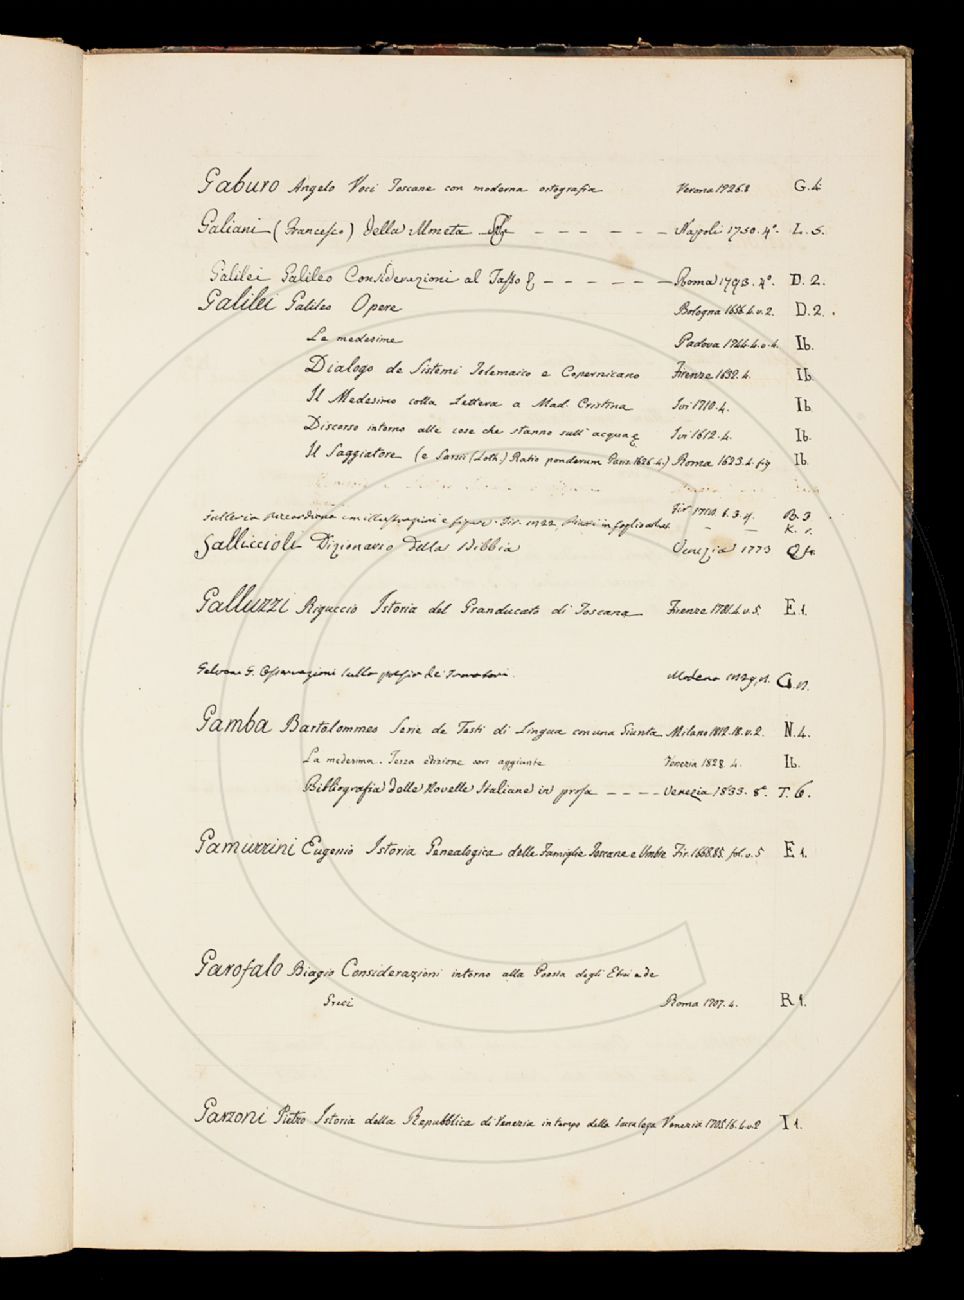 Gaburo Angelo Voci Toscane con moderna ortografia Verona 1726.8 G.4
Galiani (Francesco) Della Moneta - - - - - - Napoli 1750. 4º. L. 5.
Galilei Galileo Considerazioni al Tasso - - - - - - Roma 1793. 4º. D. 2.
Galilei Galileo Opere Bologna 1656.4.v.2. D.2.
Le medesime Padova 1744.4.v.4. Ib.
Dialogo de Sistemi Tolemaico e Copernicano Firenze 1632.4. Ib.
Il Medesimo colla Lettera a Mad. Cristina Ivi 1710.4. Ib
Discorso intorno alle cose che stanno sull' acqua Ivi 1612.4. Ib.
Il Saggiatore (e Sarsii (Loth.) Ratio ponderum Paris 1626.4.) Roma 1623.4.fig Ib.
Fir. B.3
Galleria Riccardiana con illustrazioni e figure. Fir. in foglio K.
Galliccioli Dizionario della Bibbia Venezia 1773 Q
Galluzzi Riguccio Istoria del Granducato di Toscana Firenze 1781.4.v.5. E 1.
Galvani G. Osservazioni sulla poesia de' Trovatori. Modena 1829, G.
Gamba Bartolommeo Serie de Testi di Lingua con una Giunta Milano 1812.18.v.2. N.4.
La medesima. Terza edizione con aggiunte Venezia 1828. 4. Ib.
Bibliografia delle Novelle Italiane in prosa - - - - Venezia 1833. 8º. T. 6.
Gamurrini Eugenio Istoria Genealogica delle Famiglie Toscane e Umbre Fir. 1668.85. fol.v.5 E 1.
Garofalo Biagio Considerazioni intorno alla Poesia degli Ebrei e de
Greci Roma 1707.4. R 1.
Garzoni Pietro Istoria della Repubblica di Venezia in tempo della Sacra Lega Venezia 1705.16.4.v.2 I 1.